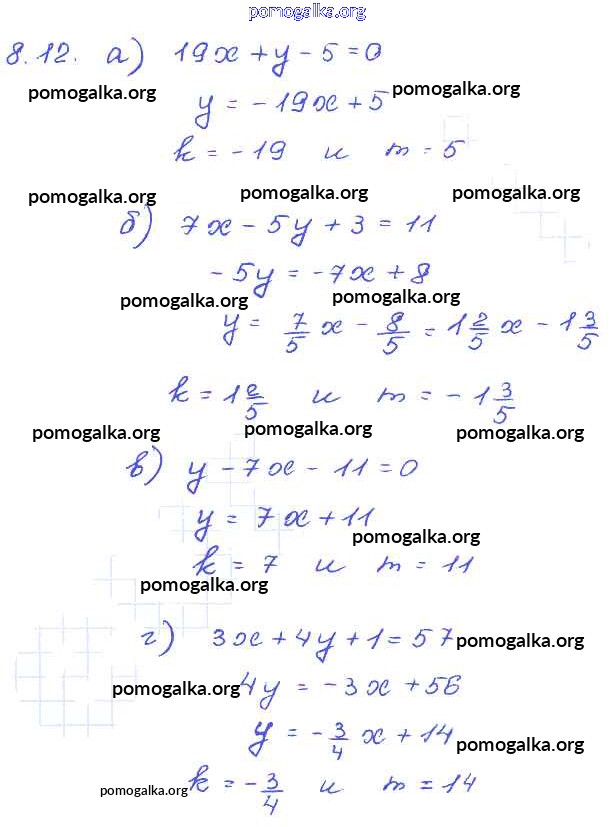 pomogalka.org
8.12. а) 19x + y - 5 = 0
pomogalka.org
y = -19x + 5 pomogalka.org
k = -19 и m = 5
pomogalka.org pomogalka.org pomogalka.org
б) 7x - 5y + 3 = 11
-5y = -7x + 8
pomogalka.org pomogalka.org
y = 7/5 x - 8/5 = 1 2/5 x - 1 3/5
k = 1 2/5 и m = -1 3/5
pomogalka.org pomogalka.org pomogalka.org
в) y - 7x - 11 = 0
y = 7x + 11
pomogalka.org
k = 7 и m = 11
pomogalka.org
г) 3x + 4y + 1 = 57 pomogalka.org
pomogalka.org 4y = -3x + 56
y = -3/4 x + 14 pomogalka.org
pomogalka.org k = -3/4 и m = 14